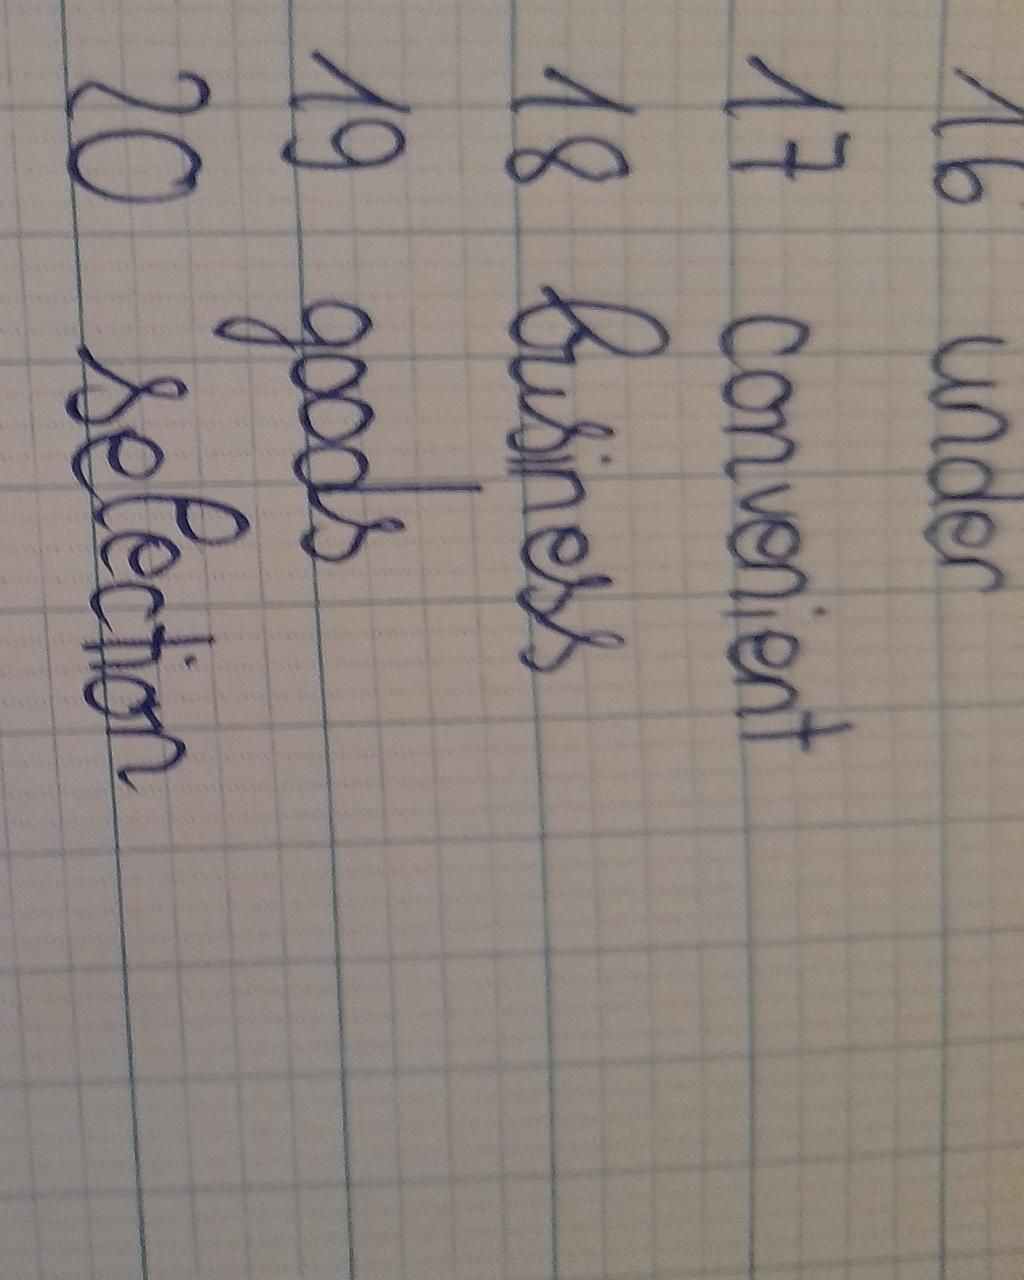 16 under
17 convenient
18 business
19 goods
20 selection